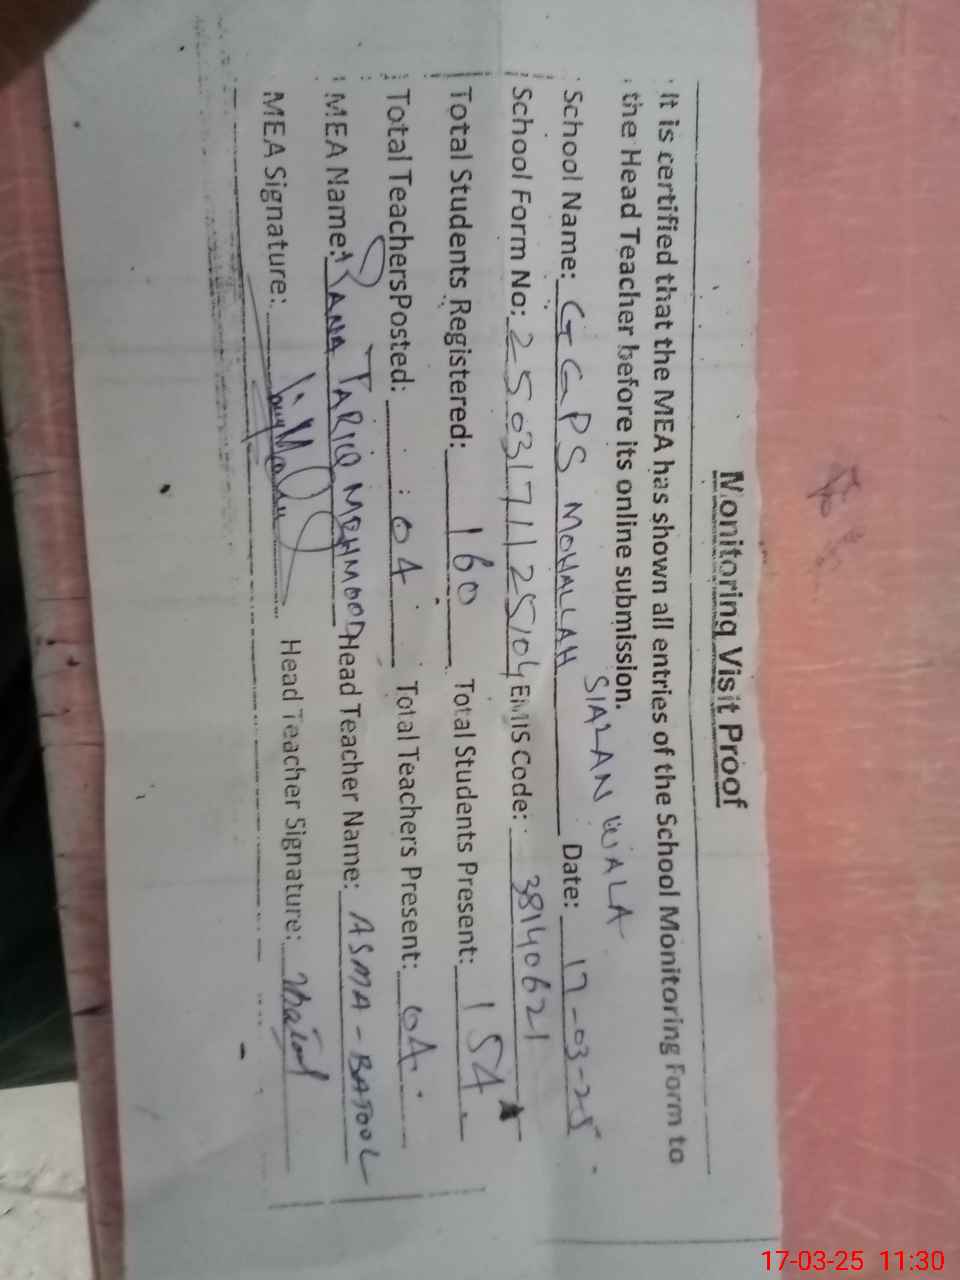 Monitoring Visit Proof
It is certified that the MEA has shown all entries of the School Monitoring Form to
the Head Teacher before its online submission.
School Name: GGPS MOHALLAH SIALAN WALA Date: 17-03-25
School Form No: 2503171125104 EMIS Code: 38140621
Total Students Registered: 160 Total Students Present: 154
Total Teachers Posted: 04 Total Teachers Present: 04
MEA Name: RANA TARIQ MEHMOOD Head Teacher Name: ASMA-BATOOL
MEA Signature: Head Teacher Signature:
17-03-25 11:30